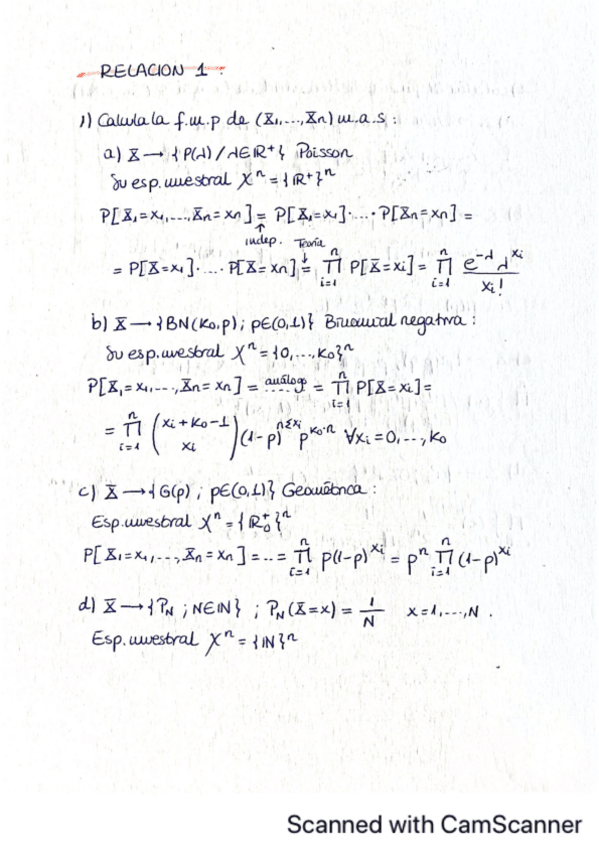 RELACION 1 :
1) Calcula la f.m.p de (X₁,...,Xn) m.a.s :
a) X → {P(λ) / λ∈ℝ⁺} Poisson
Su esp. muestral Xⁿ = {ℝ⁺}ⁿ
P[X₁=x₁,...,Xn=xn] = P[X₁=x₁]·...·P[Xn=xn] =
indep. Teoría
= P[X=x₁]·...·P[X=xn] = ∏ᵢ₌₁ⁿ P[X=xi] = ∏ᵢ₌₁ⁿ e^(-λ) λ^(xi) / xi!
b) X → {BN(K₀,p) ; p∈(0,1)} Binomial negativa :
Su esp. muestral Xⁿ = {0,...,K₀}ⁿ
P[X₁=x₁,...,Xn=xn] = análogo = ∏ᵢ₌₁ⁿ P[X=xi] =
= ∏ᵢ₌₁ⁿ (xi+K₀-1 xi) (1-p)^(nΣxi) p^(K₀·n) ∀xi=0,...,K₀
c) X → {G(p) ; p∈(0,1)} Geométrica :
Esp. muestral Xⁿ = {ℝ₀⁺}ⁿ
P[X₁=x₁,...,Xn=xn] = ... = ∏ᵢ₌₁ⁿ p(1-p)^(xi) = pⁿ ∏ᵢ₌₁ⁿ (1-p)^(xi)
d) X → {P_N ; N∈ℕ} ; P_N(X=x) = 1/N x=1,...,N .
Esp. muestral Xⁿ = {ℕ}ⁿ
Scanned with CamScanner